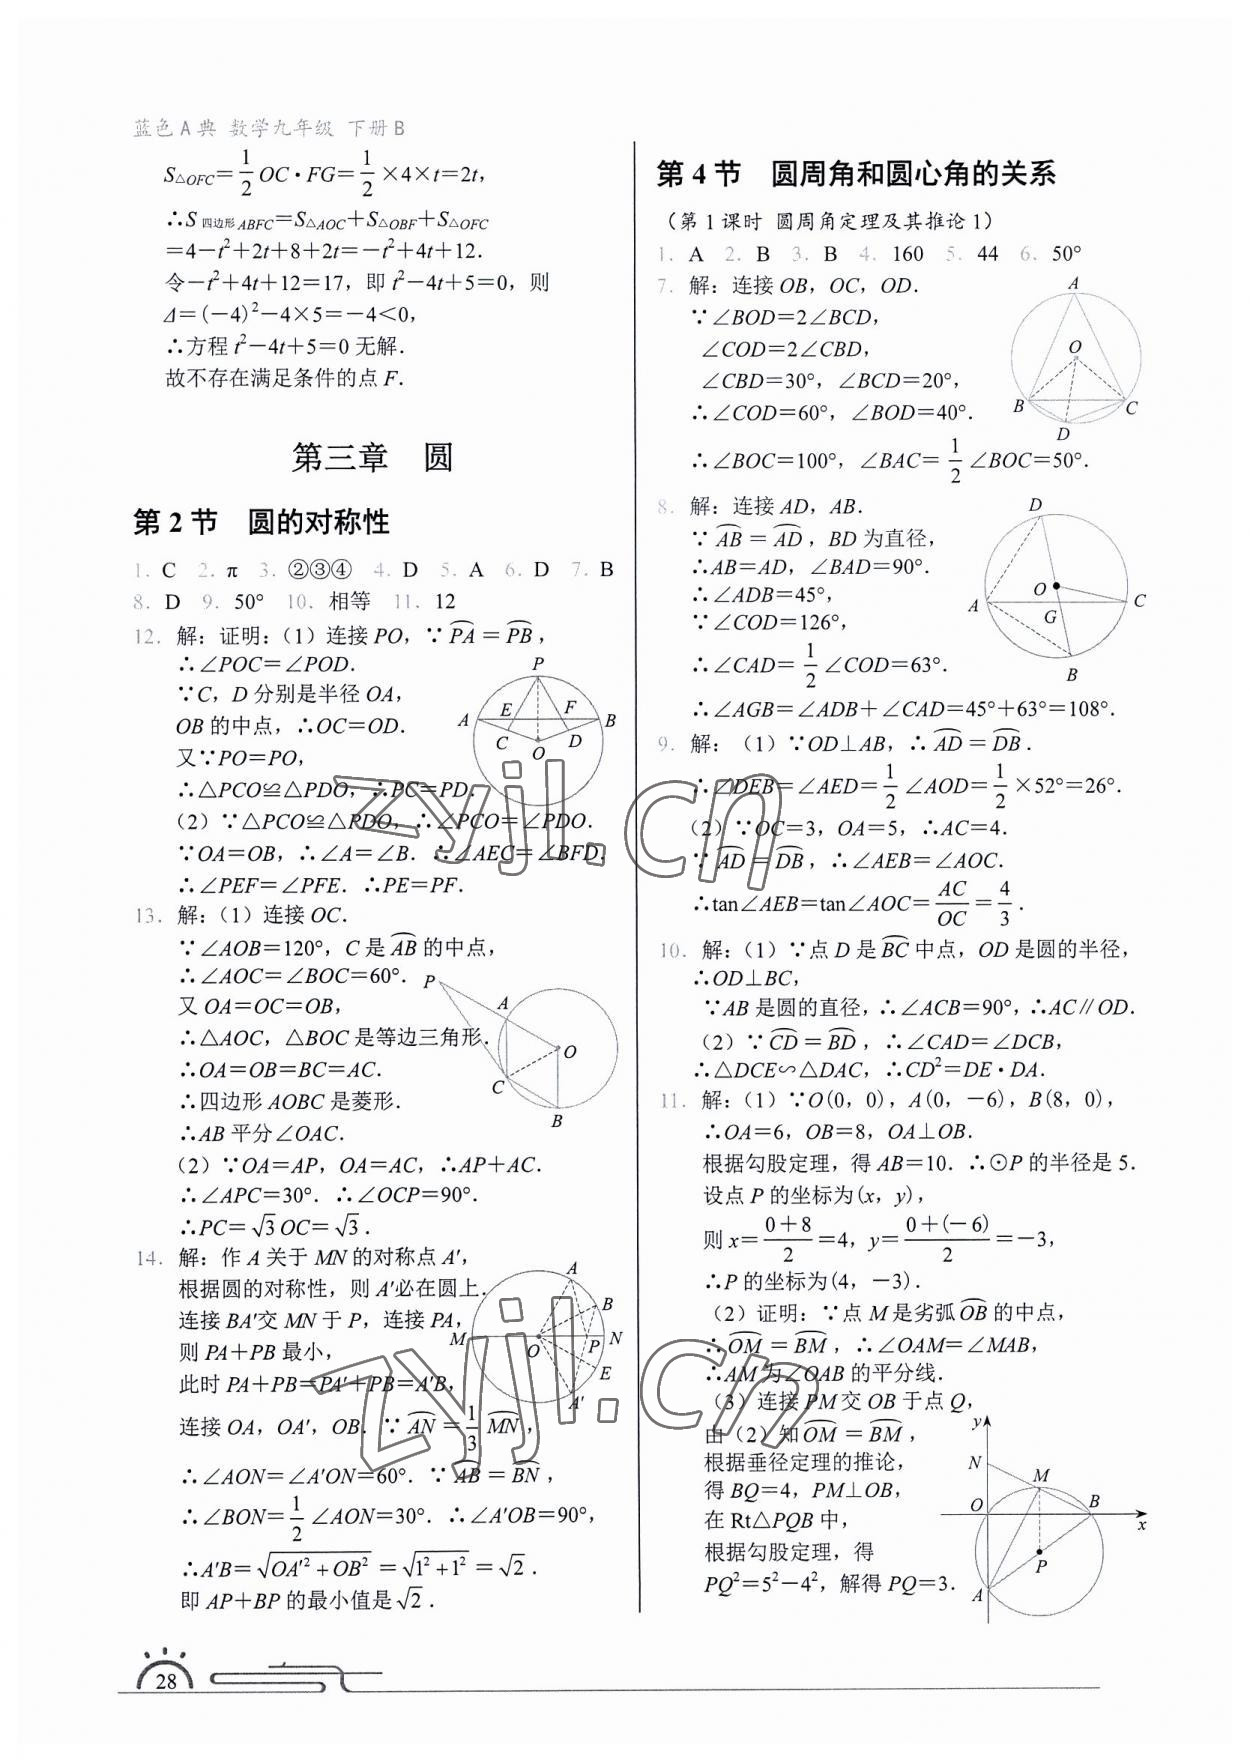 蓝色A典 数学九年级 下册B
S△OFC=1/2 OC·FG=1/2×4×t=2t,
∴S四边形ABFC=S△AOC+S△OBF+S△OFC
=4-t²+2t+8+2t=-t²+4t+12.
令-t²+4t+12=17，即 t²-4t+5=0，则
Δ=(-4)²-4×5=-4<0,
∴方程 t²-4t+5=0 无解.
故不存在满足条件的点 F.
第三章 圆
第 2 节 圆的对称性
1. C 2. π 3. ②③④ 4. D 5. A 6. D 7. B
8. D 9. 50° 10. 相等 11. 12
12. 解：证明：(1) 连接 PO，∵⌒PA=⌒PB,
∴∠POC=∠POD.
∵C，D 分别是半径 OA,
OB 的中点，∴OC=OD.
又∵PO=PO,
∴△PCO≌△PDO，∴PC=PD.
(2) ∵△PCO≌△PDO，∴∠PCO=∠PDO.
∵OA=OB，∴∠A=∠B．∴∠AEC=∠BFD.
∴∠PEF=∠PFE．∴PE=PF.
P
E
F
A
B
C
D
O
13. 解：(1) 连接 OC.
∵∠AOB=120°，C 是⌒AB的中点,
∴∠AOC=∠BOC=60°.
又 OA=OC=OB,
∴△AOC，△BOC 是等边三角形.
∴OA=OB=BC=AC.
∴四边形 AOBC 是菱形.
∴AB 平分∠OAC.
(2) ∵OA=AP，OA=AC，∴AP+AC.
∴∠APC=30°．∴∠OCP=90°.
∴PC=√3 OC=√3.
P
A
O
C
B
14. 解：作 A 关于 MN 的对称点 A′,
根据圆的对称性，则 A′必在圆上.
连接 BA′交 MN 于 P，连接 PA,
则 PA+PB 最小,
此时 PA+PB=PA′+PB=A′B,
连接 OA，OA′，OB．∵⌒AN=1/3⌒MN,
∴∠AON=∠A′ON=60°．∵⌒AB=⌒BN,
∴∠BON=1/2∠AON=30°．∴∠A′OB=90°,
∴A′B=√(OA′²+OB²)=√(1²+1²)=√2.
即 AP+BP 的最小值是√2.
A
B
M
N
O
P
E
A′
第 4 节 圆周角和圆心角的关系
（第 1 课时 圆周角定理及其推论 1）
1. A 2. B 3. B 4. 160 5. 44 6. 50°
7. 解：连接 OB，OC，OD.
∵∠BOD=2∠BCD,
∠COD=2∠CBD,
∠CBD=30°，∠BCD=20°,
∴∠COD=60°，∠BOD=40°.
∴∠BOC=100°，∠BAC=1/2∠BOC=50°.
A
O
B
C
D
8. 解：连接 AD，AB.
∵⌒AB=⌒AD，BD 为直径,
∴AB=AD，∠BAD=90°.
∴∠ADB=45°,
∵∠COD=126°,
∴∠CAD=1/2∠COD=63°.
∴∠AGB=∠ADB+∠CAD=45°+63°=108°.
D
O
A
C
G
B
9. 解：(1) ∵OD⊥AB，∴⌒AD=⌒DB.
∴∠DEB=∠AED=1/2∠AOD=1/2×52°=26°.
(2) ∵OC=3，OA=5，∴AC=4.
∵⌒AD=⌒DB，∴∠AEB=∠AOC.
∴tan∠AEB=tan∠AOC=AC/OC=4/3.
10. 解：(1) ∵点 D 是⌒BC中点，OD 是圆的半径,
∴OD⊥BC,
∵AB 是圆的直径，∴∠ACB=90°，∴AC∥OD.
(2) ∵⌒CD=⌒BD，∴∠CAD=∠DCB,
∴△DCE∽△DAC，∴CD²=DE·DA.
11. 解：(1) ∵O(0，0)，A(0，-6)，B(8，0),
∴OA=6，OB=8，OA⊥OB.
根据勾股定理，得 AB=10．∴⊙P 的半径是 5.
设点 P 的坐标为(x，y),
则 x=(0+8)/2=4，y=(0+(-6))/2=-3,
∴P 的坐标为(4，-3).
(2) 证明：∵点 M 是劣弧⌒OB的中点,
∴⌒OM=⌒BM，∴∠OAM=∠MAB,
∴AM 为∠OAB 的平分线.
(3) 连接 PM 交 OB 于点 Q,
由 (2) 知⌒OM=⌒BM,
根据垂径定理的推论,
得 BQ=4，PM⊥OB,
在 Rt△PQB 中,
根据勾股定理，得
PQ²=5²-4²，解得 PQ=3.
y
N
M
O
B
x
P
A
zyjl.cn
zyjl.cn
28